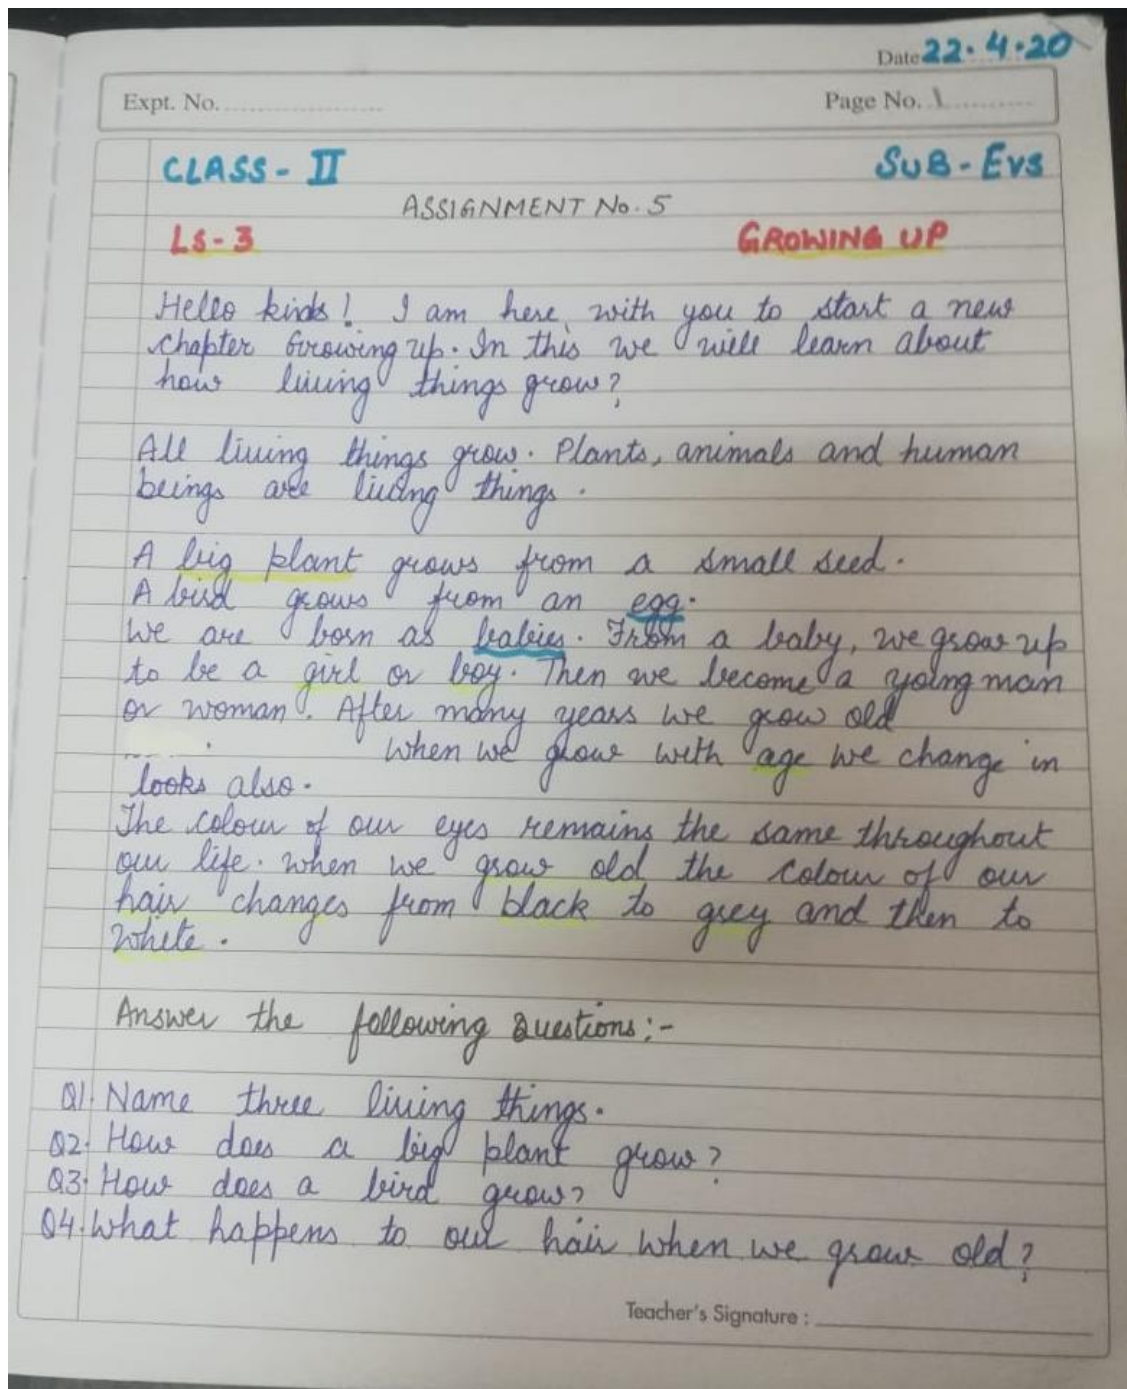 Date 22.4.20
Expt. No.
Page No. 1
CLASS - II SUB - EVS
ASSIGNMENT No. 5
LS - 3 GROWING UP
Hello kids! I am here with you to start a new
chapter Growing up. In this we will learn about
how living things grow?
All living things grow. Plants, animals and human
beings are living things.
A big plant grows from a small seed.
A bird grows from an egg.
We are born as babies. From a baby, we grow up
to be a girl or boy. Then we become a young man
or woman. After many years we grow old
. When we grow with age we change in
looks also.
The colour of our eyes remains the same throughout
our life. When we grow old the colour of our
hair changes from black to grey and then to
white.
Answer the following Questions:-
Q1. Name three living things.
Q2. How does a big plant grow?
Q3. How does a bird grow?
Q4. What happens to our hair when we grow old?
Teacher's Signature :